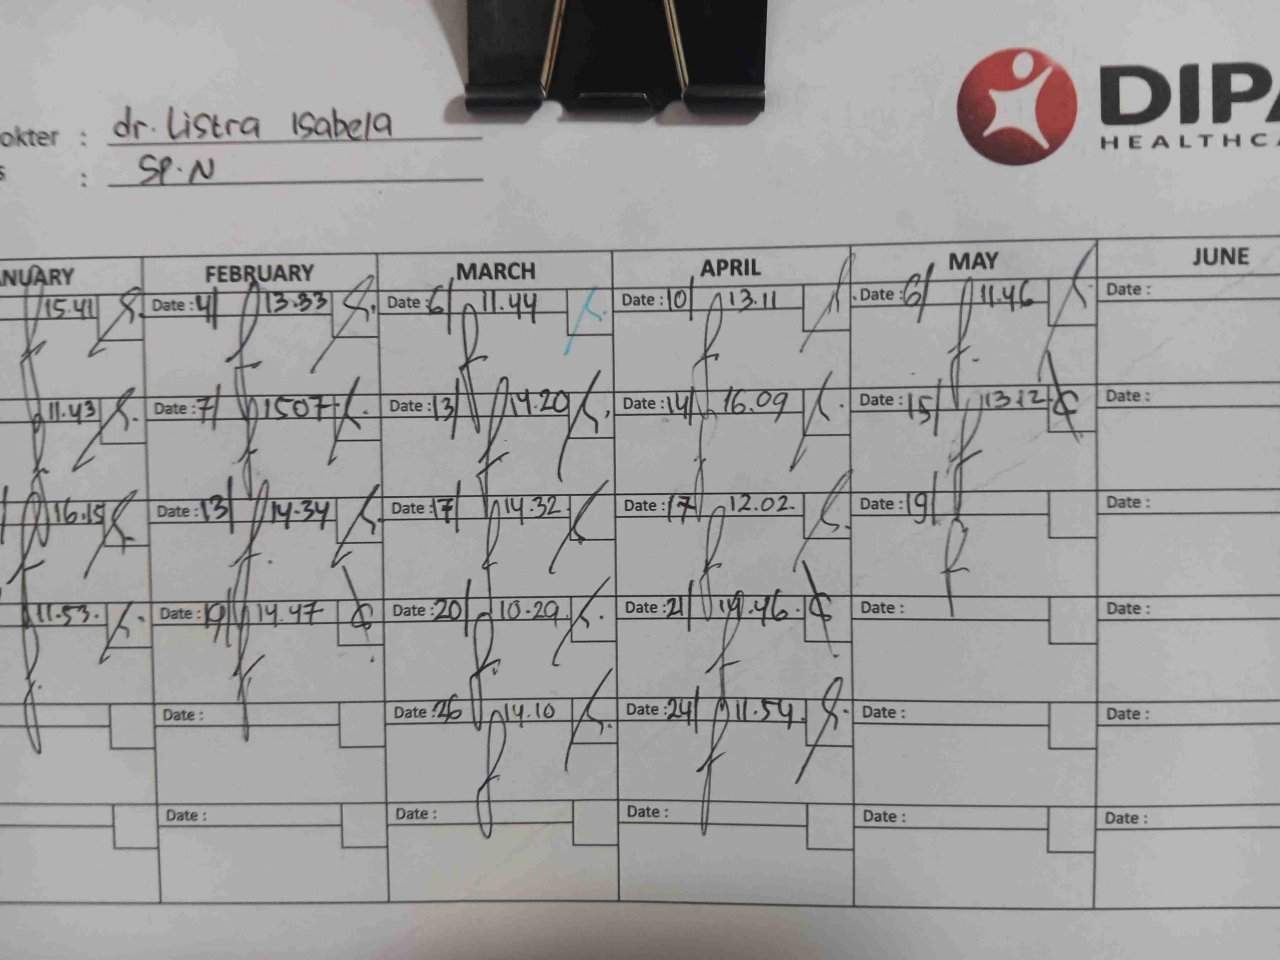 okter : dr. Listra Isabela
s : SP.N
DIPA
HEALTHCA
NUARY FEBRUARY MARCH APRIL MAY JUNE
15.41 Date : 4/ 13.33 Date : 6/ 11.44 Date : 10/ 13.11 Date : 6/ 11.46 Date :
11.43 Date : 7/ 1507 Date : 13/ 14.20 Date : 14/ 16.09 Date : 15/ 13.12 Date :
16.15 Date : 13/ 14.34 Date : 17/ 14.32 Date : 17/ 12.02. Date : 19/ Date :
11.53. Date : 19/ 14.47 Date : 20/ 10.29 Date : 21/ Date : Date :
Date : Date : 26 14.10 Date : 24/ 11.54 Date : Date :
Date : Date : Date : Date : Date :